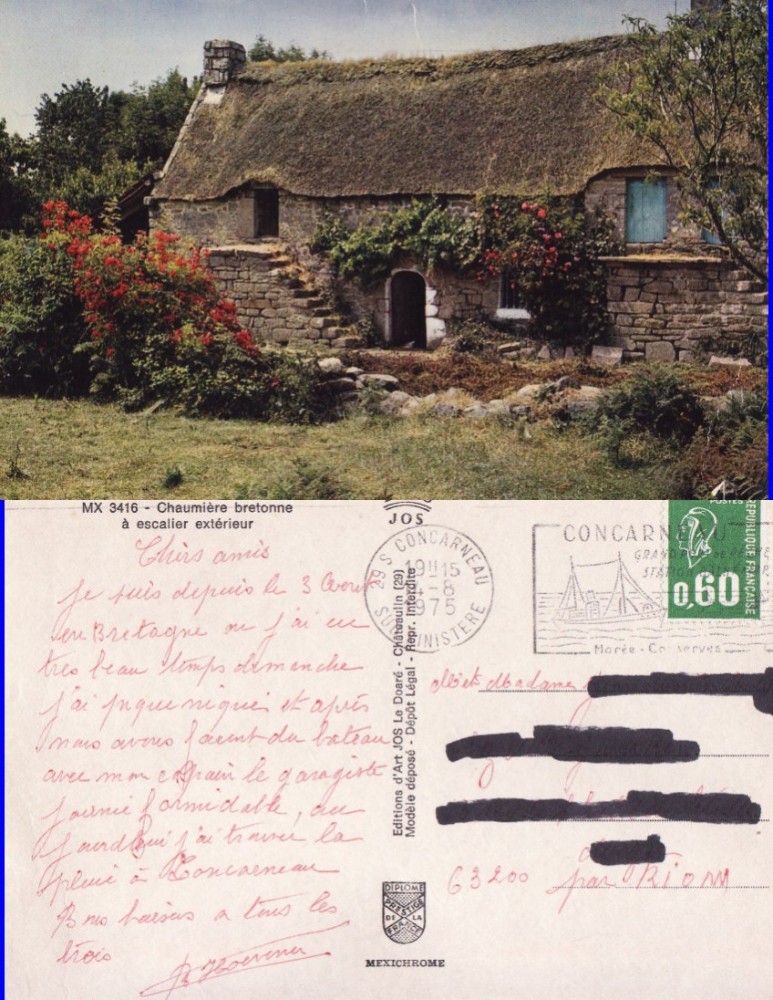 MX 3416 - Chaumière bretonne
à escalier extérieur
JOS
Chers amis
je suis depuis le 3
en Bretagne ou j'ai eu
tres beau temps dimanche
j'ai pique niqué et après
nous avons du bateau
avec mon copain le garagiste
journée formidable, au
jourd'hui j'ai trouver la
pluie à Concarneau
Bons baisers a tous les
trois
Editions d'Art JOS Le Doaré - Châteaulin (29)
Modèle déposé - Dépôt Légal - Repr. Interdite
DIPLOME
PRESTIGE
DE LA
FRANCE
MEXICHROME
29 S CONCARNEAU
19H15
4-8
1975
SUD FINISTERE
CONCARNEAU
Marée - Conserves
POSTES
RÉPUBLIQUE FRANÇAISE
0,60
Mr et Madame
63200 par RIOM